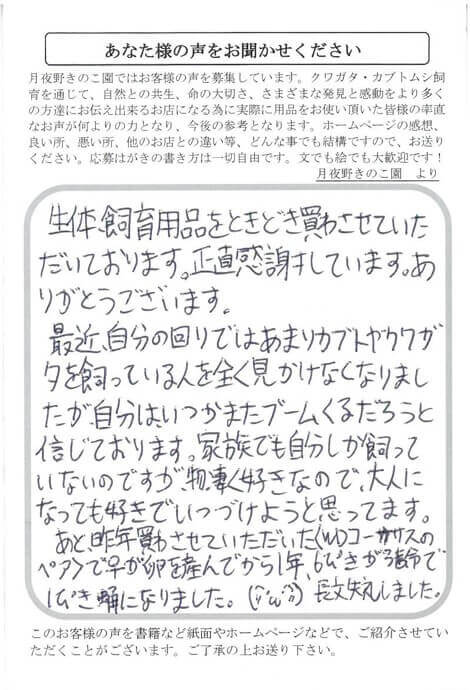 あなた様の声をお聞かせください
月夜野きのこ園ではお客様の声を募集しています。クワガタ・カブトムシ飼
育を通じて、自然との共生、命の大切さ、さまざまな発見と感動をより多く
の方達にお伝え出来るお店になる為に実際に用品をお使い頂いた皆様の率直
なお声が何よりの力となり、今後の参考となります。ホームページの感想、
良い所、悪い所、他のお店との違い等、どんな事でも結構ですので、お送り
ください。応募はがきの書き方は一切自由です。文でも絵でも大歓迎です！
月夜野きのこ園　より
生体、飼育用品をときどき買わさせていた
だいております。正直感謝しています。あ
りがとうございます。
最近、自分の回りではあまりカブトやクワガ
タを飼っている人を全く見かけなくなりまし
たが、自分は、いつかまたブームくるだろうと
信じております。家族でも自分しか飼って
いないのですが、物凄く好きなので、大人に
なっても好きでいつづけようと思ってます。
あと、昨年買わさせていただいた〈WDコーカサスの
ペア〉で♀が卵を産んでから1年、6ぴきが3齢で
1ぴき蛹になりました。長文失礼しました。
このお客様の声を書籍など紙面やホームページなどで、ご紹介させてい
ただくことがございます。ご了承の上お送り下さい。